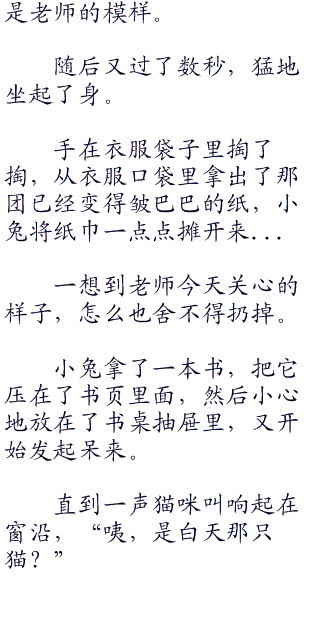 是老师的模样。
随后又过了数秒，猛地
坐起了身。
手在衣服袋子里掏了
掏，从衣服口袋里拿出了那
团已经变得皱巴巴的纸，小
兔将纸巾一点点摊开来...
一想到老师今天关心的
样子，怎么也舍不得扔掉。
小兔拿了一本书，把它
压在了书页里面，然后小心
地放在了书桌抽屉里，又开
始发起呆来。
直到一声猫咪叫响起在
窗沿，“咦，是白天那只
猫？”